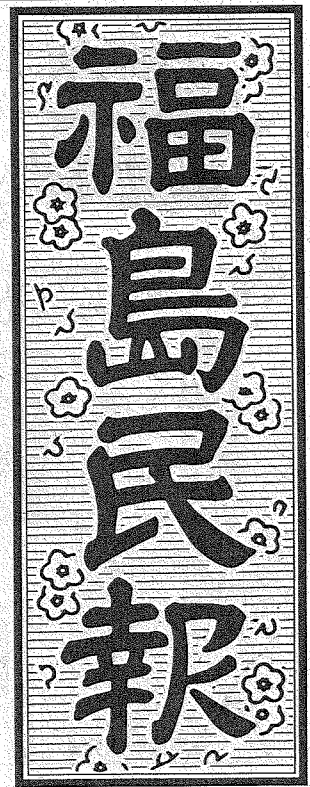 福島民報